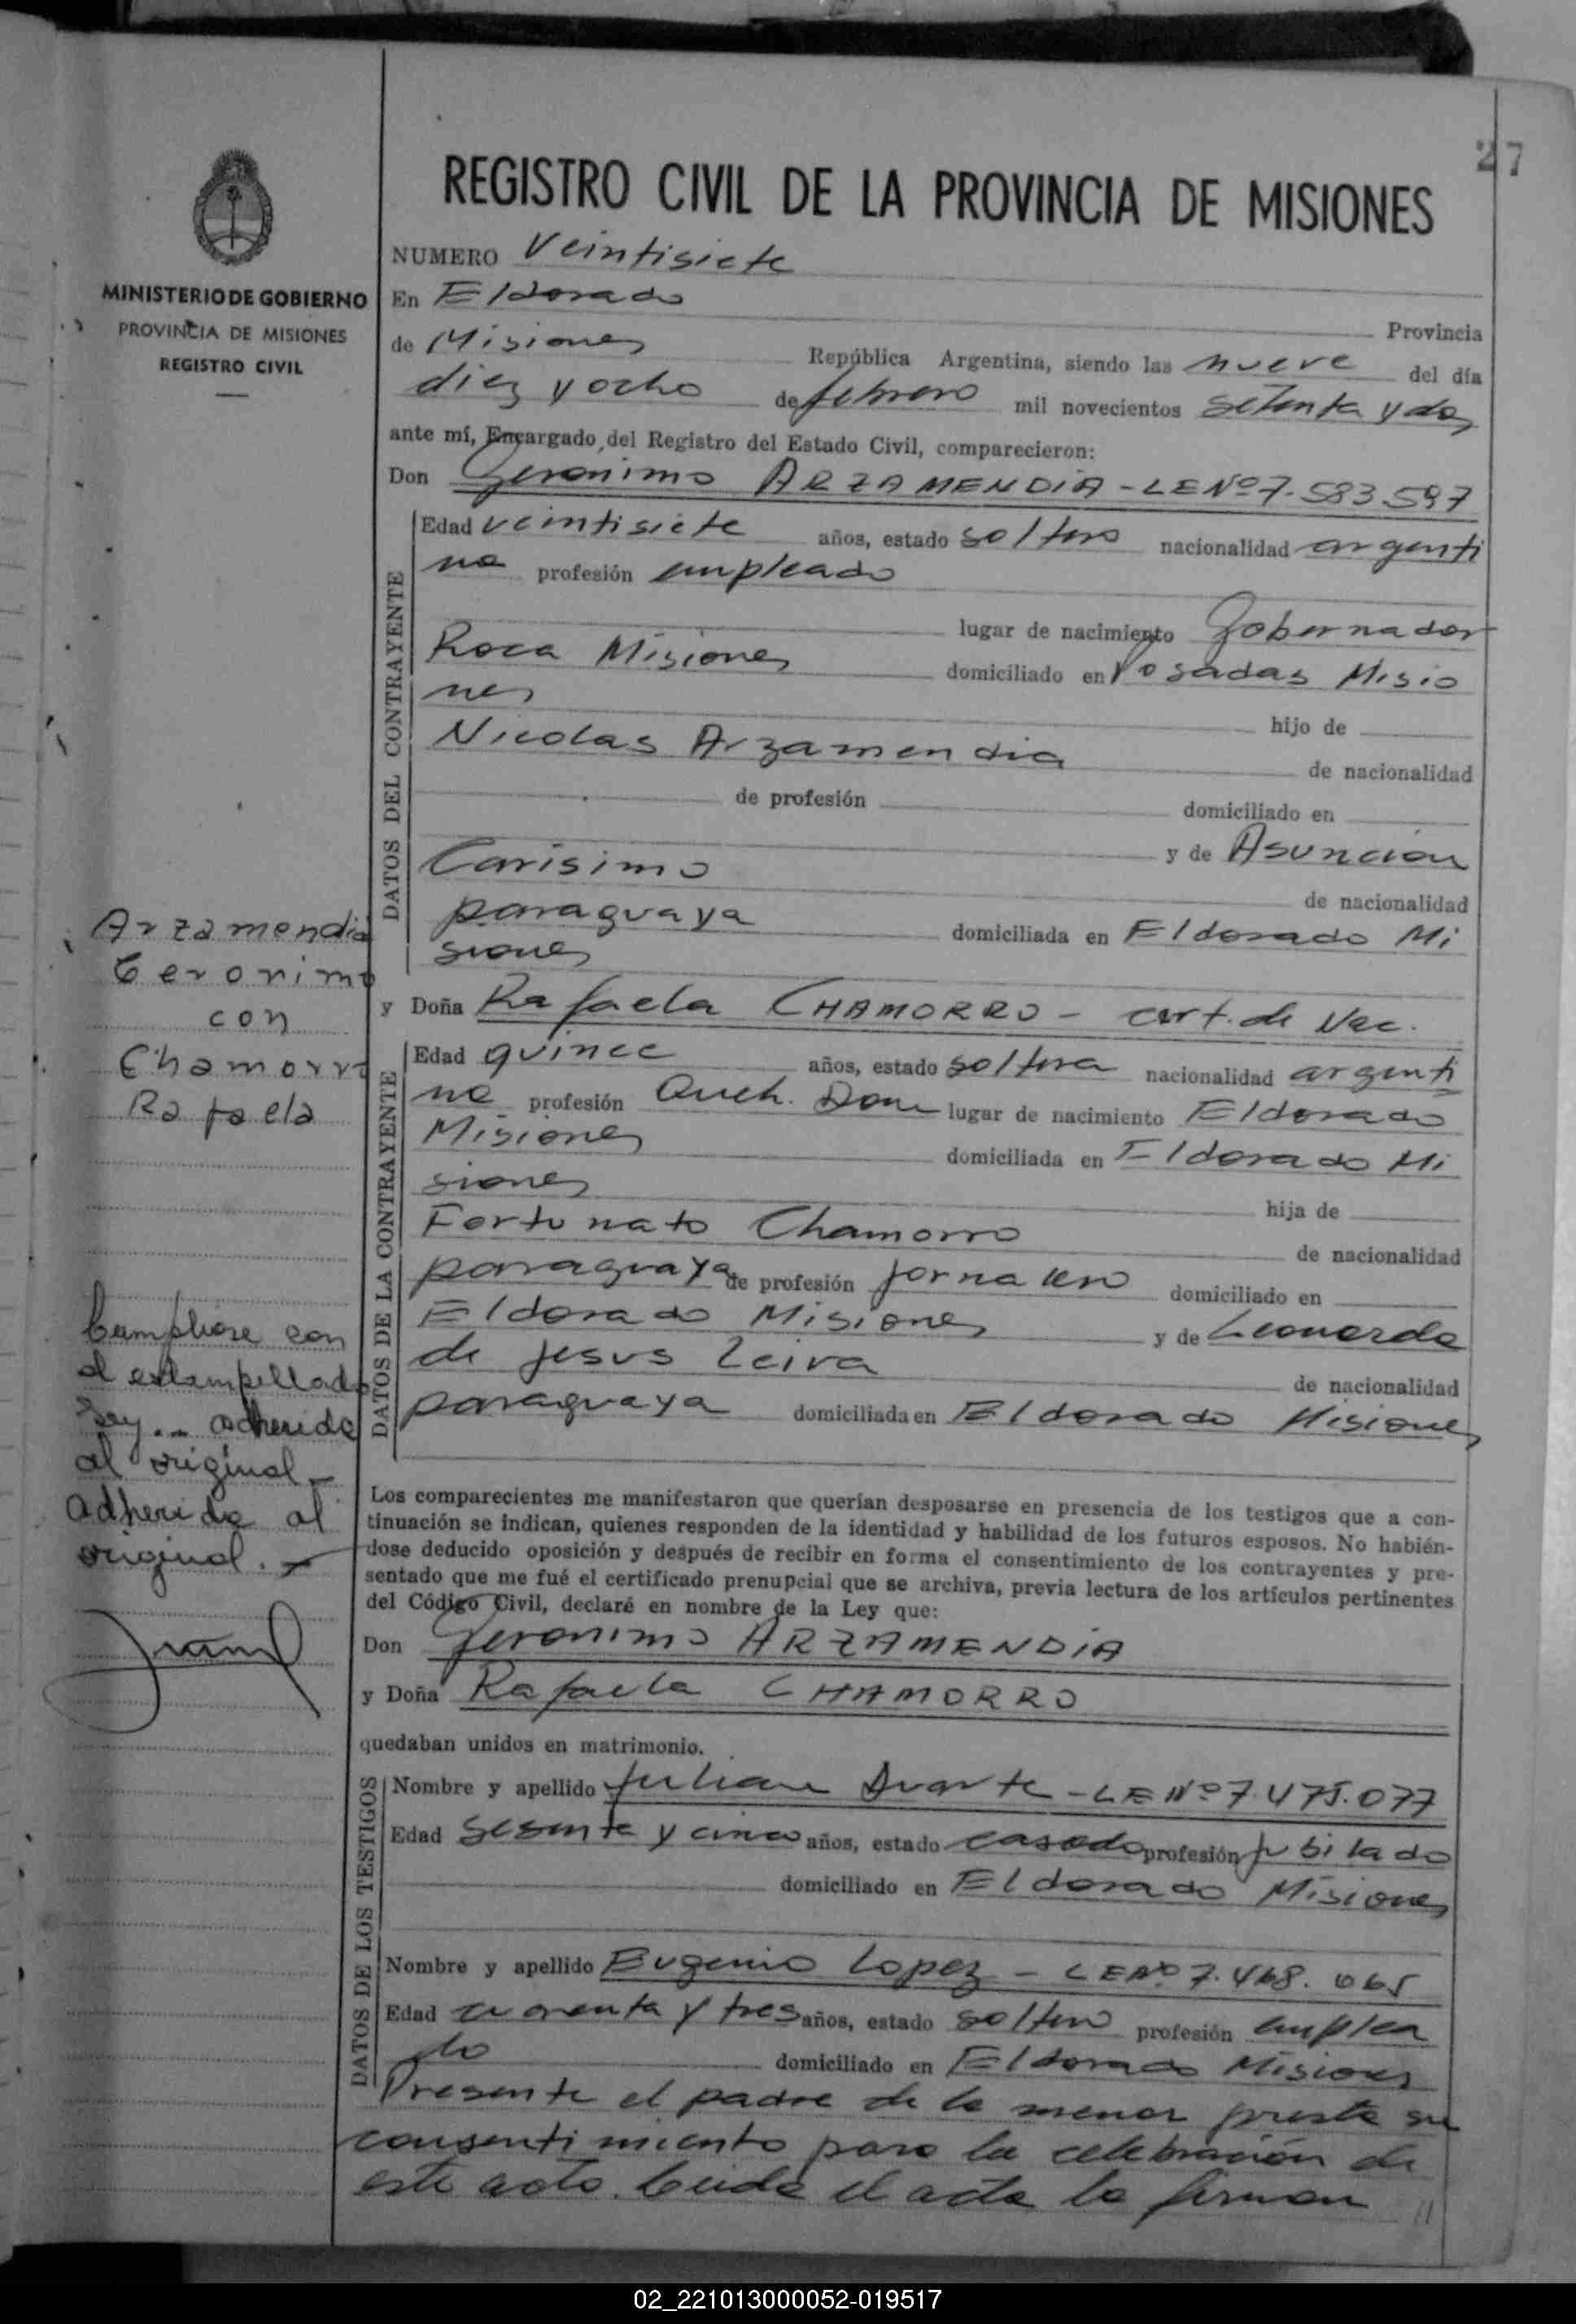 27
REGISTRO CIVIL DE LA PROVINCIA DE MISIONES
MINISTERIO DE GOBIERNO
PROVINCIA DE MISIONES
REGISTRO CIVIL
NUMERO Veintisiete
En Eldorado Provincia
de Misiones República Argentina, siendo las nueve del día
diez y ocho de febrero mil novecientos setenta y dos
ante mí, Encargado del Registro del Estado Civil, comparecieron:
Don Geronimo ARZAMENDIA - LE Nº 7.583.597
DATOS DEL CONTRAYENTE
Edad veintisiete años, estado soltero nacionalidad argenti
na profesión empleado
lugar de nacimiento Gobernador
Roca Misiones domiciliado en Posadas Misio
nes
hijo de
Nicolas Arzamendia de nacionalidad
de profesión domiciliado en
y de Asuncion
Carisimo de nacionalidad
paraguaya domiciliada en Eldorado Mi
siones
y Doña Rafaela CHAMORRO - cert. de Nac.
DATOS DE LA CONTRAYENTE
Edad quince años, estado soltera nacionalidad argenti
na profesión Queh. Dom lugar de nacimiento Eldorado
Misiones domiciliada en Eldorado Mi
siones
hija de
Fortunato Chamorro de nacionalidad
paraguaya de profesión jornalero domiciliado en
Eldorado Misiones y de Leonarda
de Jesus Leiva de nacionalidad
paraguaya domiciliada en Eldorado Misiones
Arzamendia
Geronimo
con
Chamorro
Rafaela
Cumpliose con
el estampillado
Ley... adherida
al original
adherida al
original.
Los comparecientes me manifestaron que querían desposarse en presencia de los testigos que a con-
tinuación se indican, quienes responden de la identidad y habilidad de los futuros esposos. No habién-
dose deducido oposición y después de recibir en forma el consentimiento de los contrayentes y pre-
sentado que me fué el certificado prenupcial que se archiva, previa lectura de los artículos pertinentes
del Código Civil, declaré en nombre de la Ley que:
Don Geronimo ARZAMENDIA
y Doña Rafaela CHAMORRO
quedaban unidos en matrimonio.
DATOS DE LOS TESTIGOS
Nombre y apellido Julian Duarte - LE Nº 7.475.077
Edad sesenta y cinco años, estado casado profesión jubilado
domiciliado en Eldorado Misiones
Nombre y apellido Eugenio Lopez - LE Nº 7.468.065
Edad cuarenta y tres años, estado soltero profesión emplea
do domiciliado en Eldorado Misiones
Presente el padre de la menor presta su
consentimiento para la celebración de
este acto. Leida el acta la firman //
02_221013000052-019517